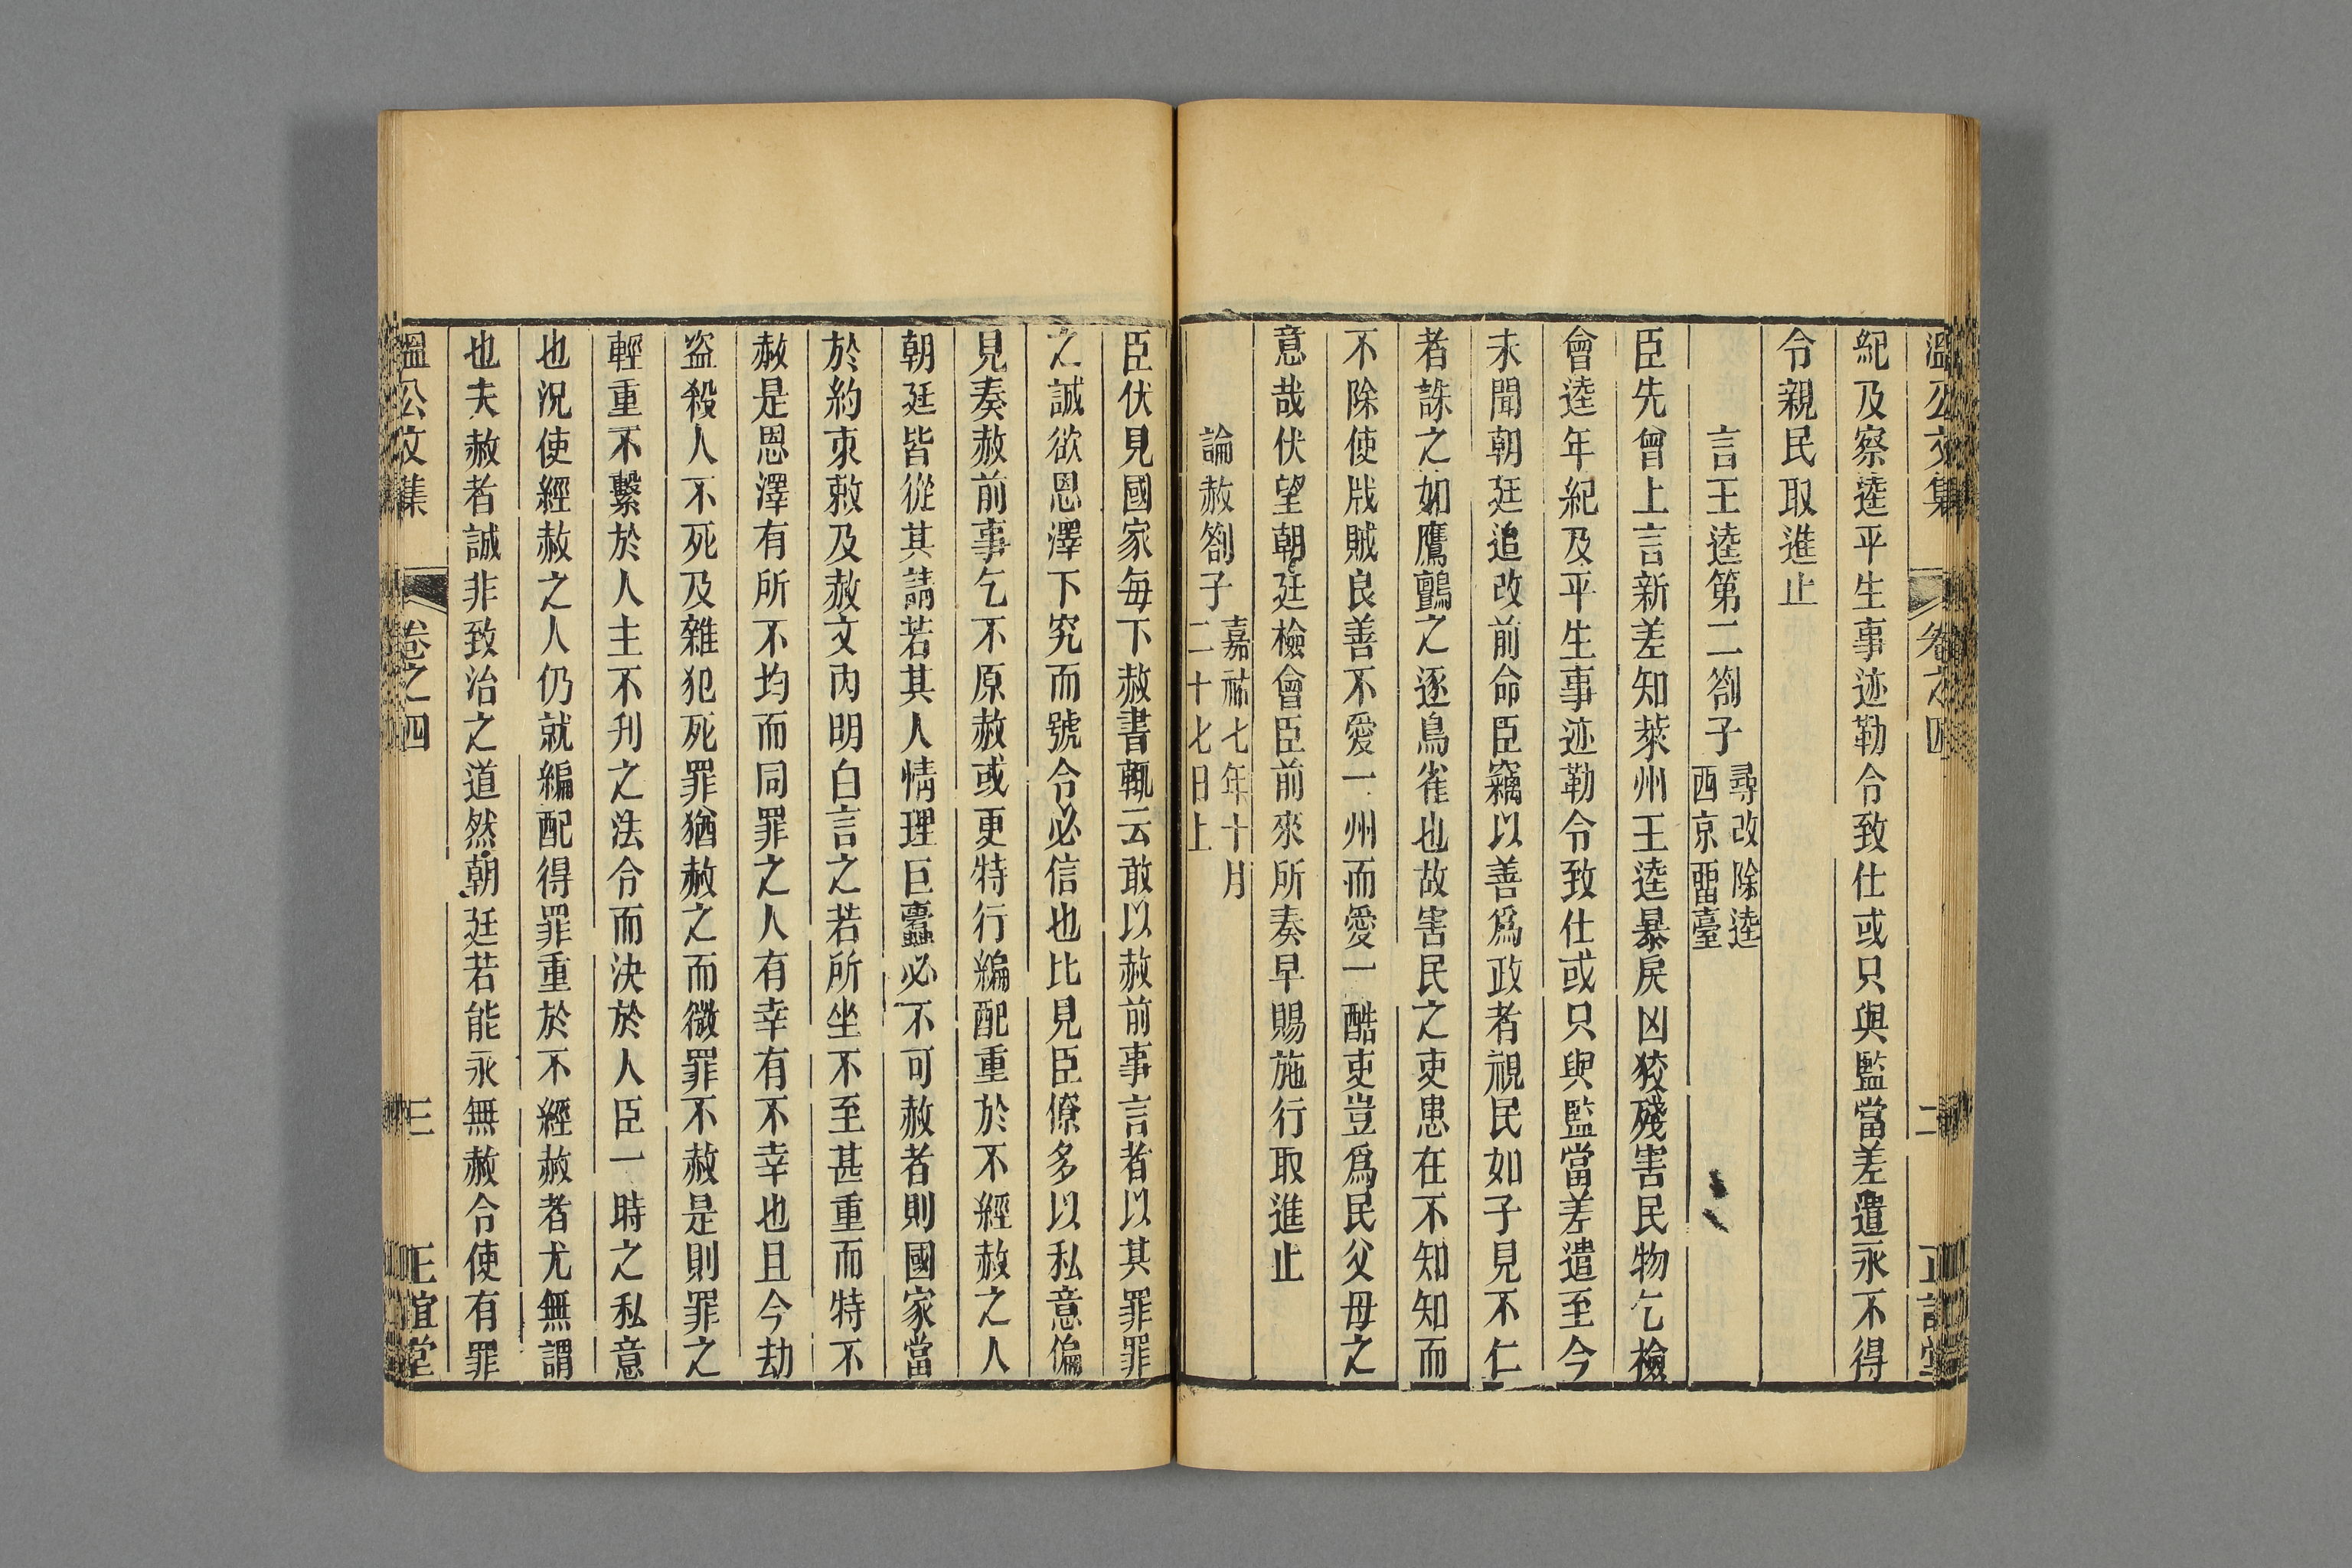 溫公文集 卷之四 二 正誼堂
紀及察逵平生事迹勒令致仕或只與監當差遣永不得
令親民取進止
言王逵第二劄子 尋改除逵西京畱臺
臣先曾上言新差知萊州王逵暴戾凶狡殘害民物乞檢
會逵年紀及平生事迹勒令致仕或只與監當差遣至今
未聞朝廷追改前命臣竊以善爲政者視民如子見不仁
者誅之如鷹鸇之逐鳥雀也故害民之吏患在不知知而
不除使戕賊良善不愛一州而愛一酷吏豈爲民父母之
意哉伏望朝廷檢會臣前來所奏早賜施行取進止
論赦劄子 嘉祐七年十月二十七日上
臣伏見國家每下赦書輒云敢以赦前事言者以其罪罪
之誠欲恩澤下究而號令必信也比見臣僚多以私意偏
見奏赦前事乞不原赦或更特行編配重於不經赦之人
朝廷皆從其請若其人情理巨蠹必不可赦者則國家當
於約束敕及赦文內明白言之若所坐不至甚重而特不
赦是恩澤有所不均而同罪之人有幸有不幸也且今劫
盜殺人不死及雜犯死罪猶赦之而微罪不赦是則罪之
輕重不繫於人主不刋之法令而決於人臣一時之私意
也況使經赦之人仍就編配得罪重於不經赦者尤無謂
也夫赦者誠非致治之道然朝廷若能永無赦令使有罪
溫公文集 卷之四 三 正誼堂